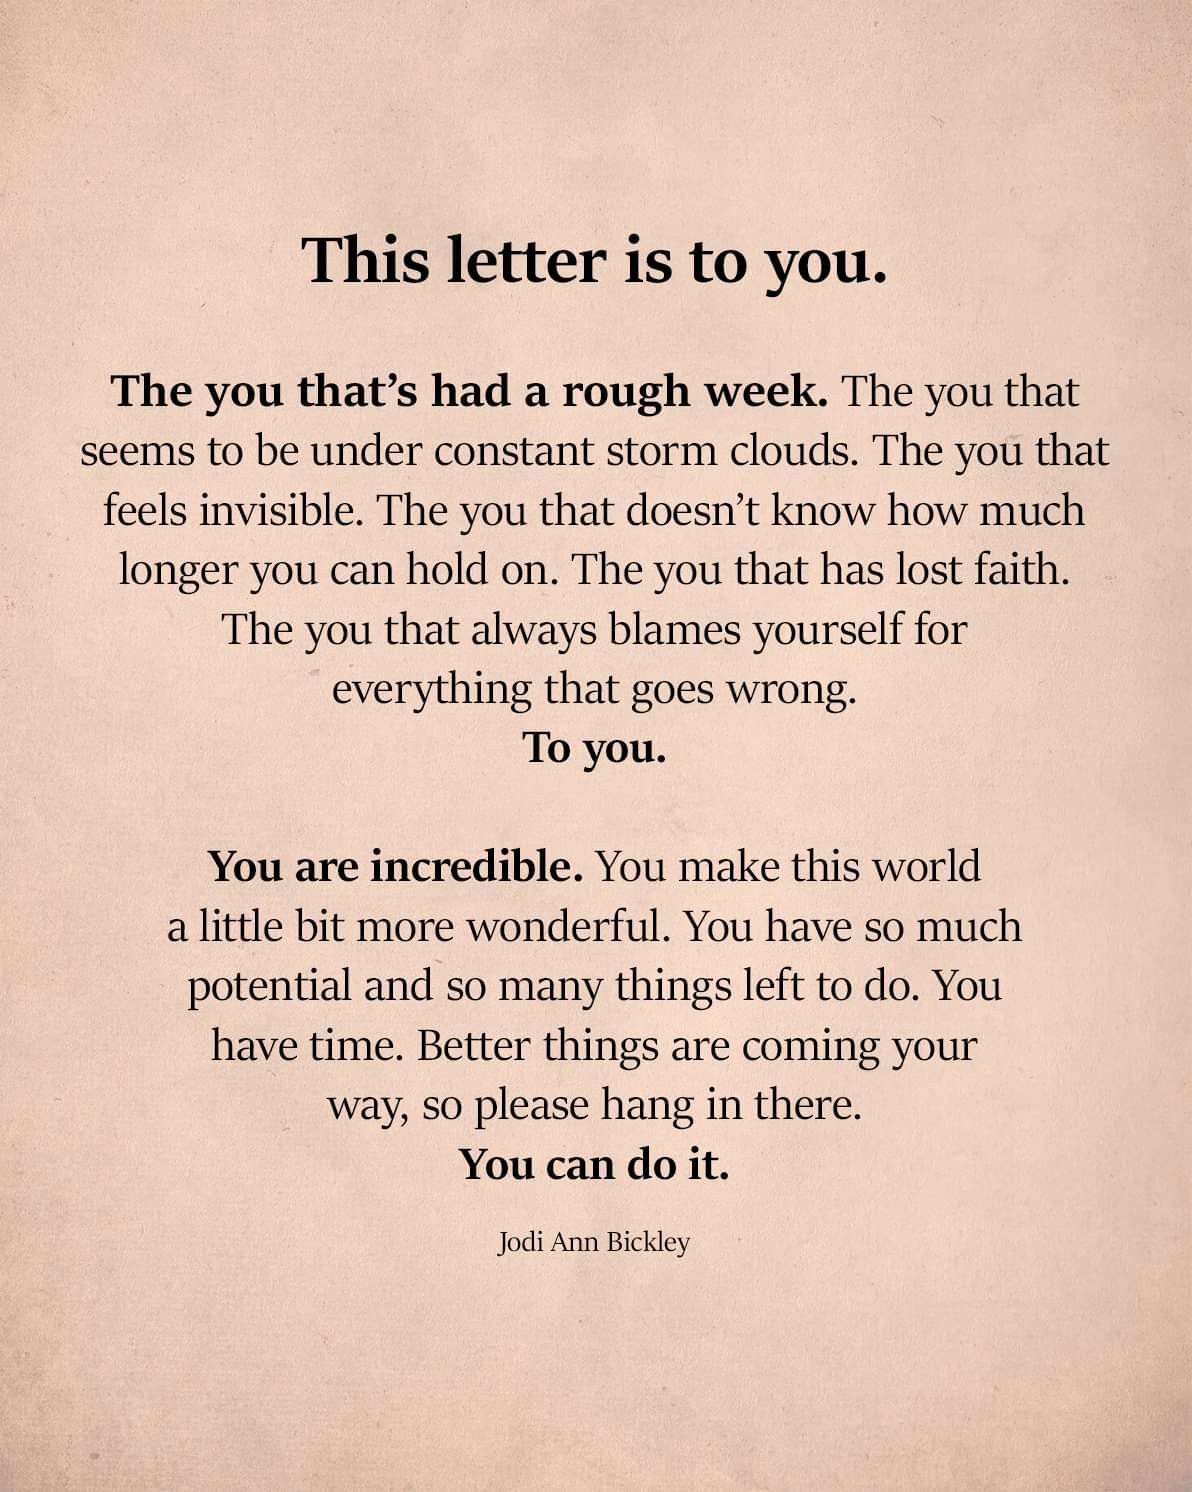 This letter is to you.
The you that’s had a rough week. The you that
seems to be under constant storm clouds. The you that
feels invisible. The you that doesn’t know how much
longer you can hold on. The you that has lost faith.
The you that always blames yourself for
everything that goes wrong.
To you.
You are incredible. You make this world
a little bit more wonderful. You have so much
potential and so many things left to do. You
have time. Better things are coming your
way, so please hang in there.
You can do it.
Jodi Ann Bickley